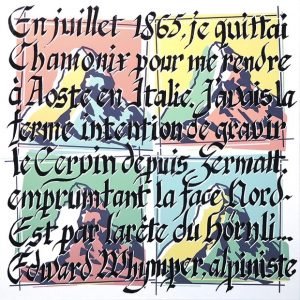 En juillet 1865, je quittai
Chamonix pour me rendre
à Aoste en Italie. J'avais la
ferme intention de gravir
le Cervin depuis Zermatt
empruntant la face Nord-
Est par l'arête du hörnli...
Edward Whymper, alpiniste